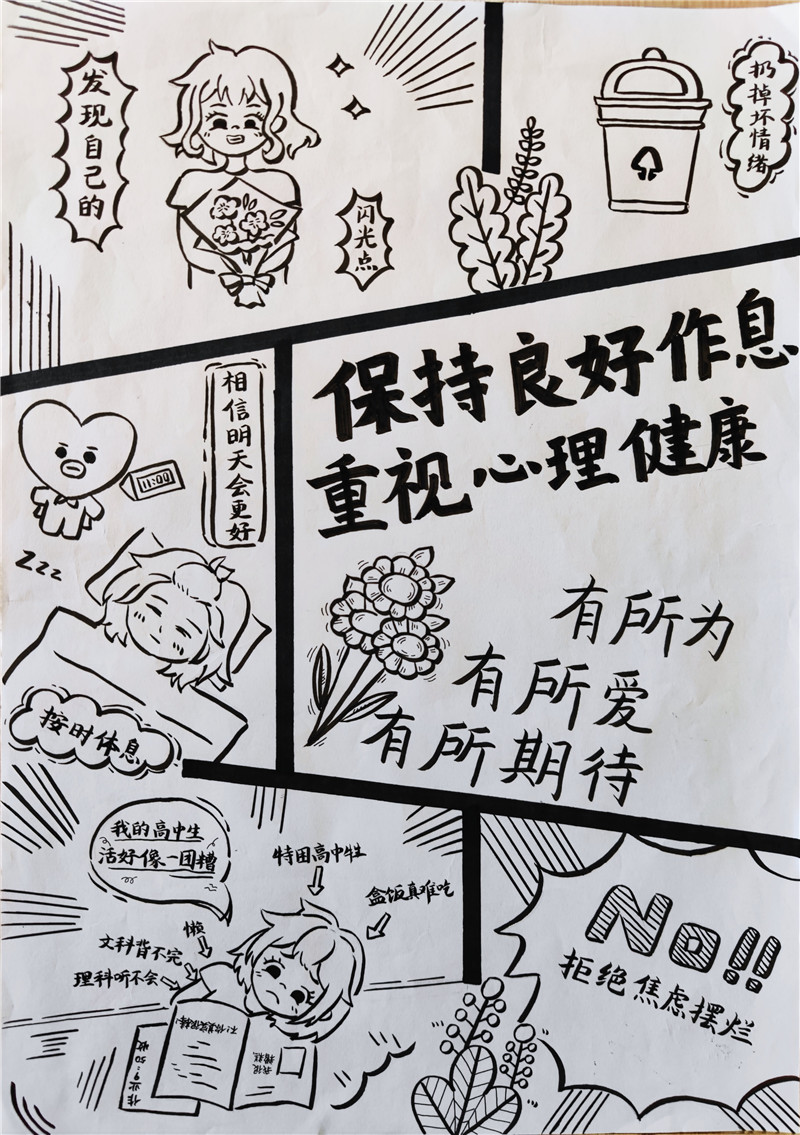 发现自己的
闪光点
扔掉坏情绪
相信明天会更好
11:00
zzz
按时休息
保持良好作息
重视心理健康
有所为
有所爱
有所期待
我的高中生
活好像一团糟
特困高中牲
盒饭真难吃
懒
文科背不完
理科听不会
No!!
拒绝焦虑摆烂